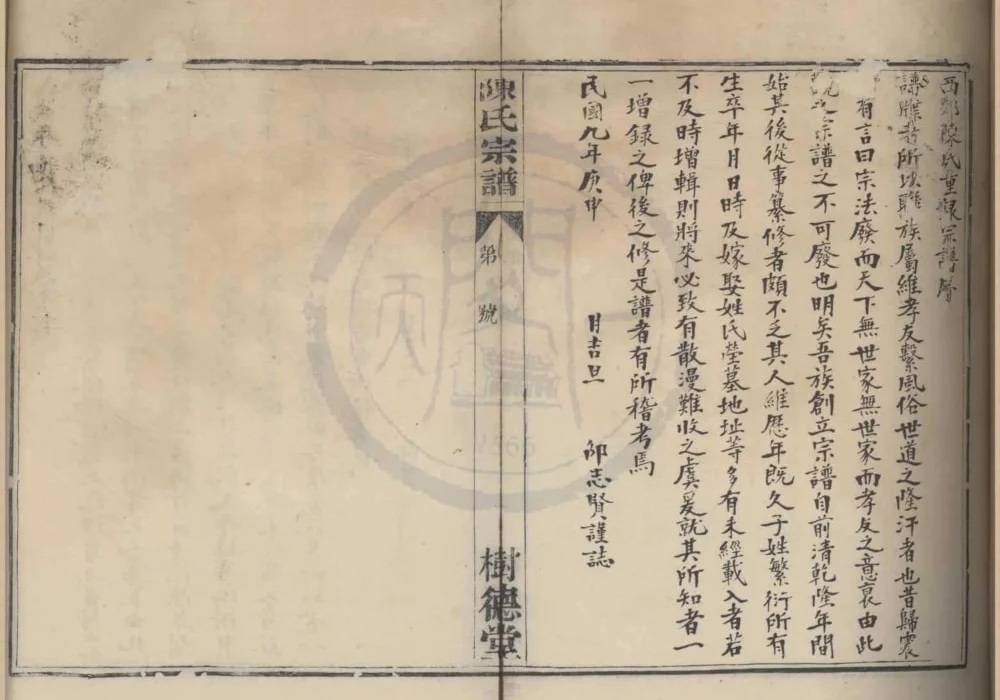 西陳氏重録宗譜
譜牒者所以聯族屬維孝友繫風俗世道之隆汙者也昔歸震
有言曰宗法廢而天下無世家無世家而孝友之意衰由此
之宗譜之不可廢也明矣吾族創立宗譜自前清乾隆年間
始其後從事纂修者頗不乏其人維歷年既久子姓繁衍所有
生卒年月日時及嫁娶姓氏塋墓地址等多有未經載入者若
不及時增輯則將來必致有散漫難收之虞爰就其所知者一
一增録之俾後之修是譜者有所稽考焉
民國九年庚申 月吉旦 志賢謹誌
陳氏宗譜 第 號 樹德堂
1566